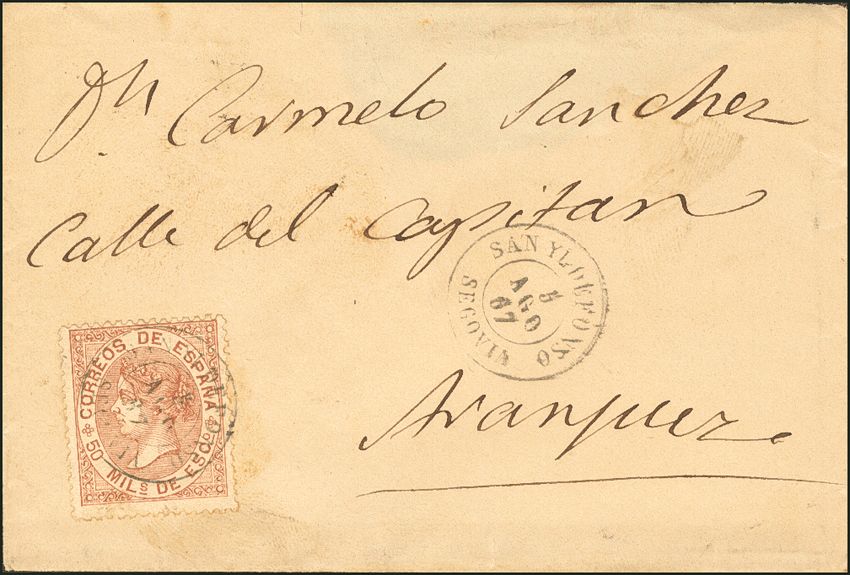 Dn. Carmelo Sanchez
Calle del Capitan
SAN YLDEFONSO
5
AGO
67
SEGOVIA
Aranjuez
CORREOS DE ESPAÑA
50 MILs DE ESCdo